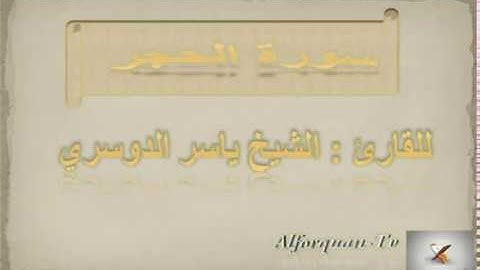 سورة الحجر
للقارئ : الشيخ ياسر الدوسري
Alforquan Tv